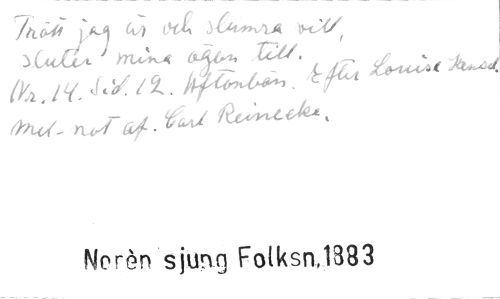 Trött jag är och slumra vill,
sluter mina ögon till.
Nr. 14. Sid. 12. Aftonbön. Efter Louise Hensel.
Mel- not af. Carl Reinecke.
Norèn sjung Folksn, 1883